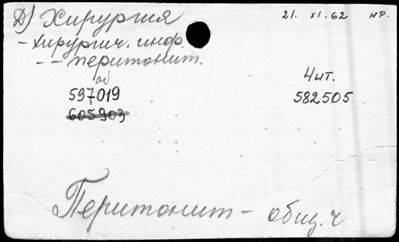 Д) Хирургия 21. XI.62 нр.
- хирургич. инф.
- - перитонит.
об Чит.
597019 582505
605903
Перитонит - общ. ч